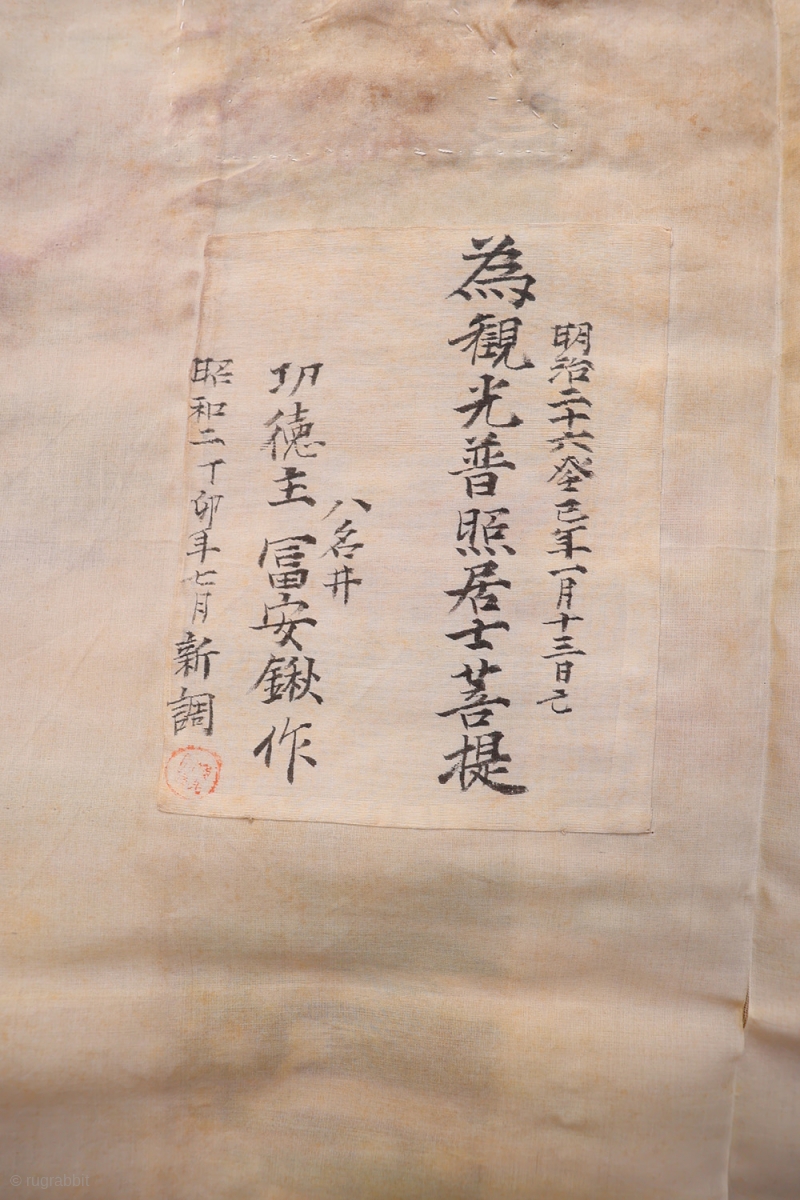 明治二十六癸巳年一月十三日亡
為観光普照居士菩提
八名井
功徳主 冨安鍬作
昭和二丁卯年七月新調
© rugrabbit